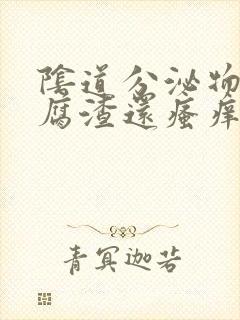 陰道分泌物
腐渣還瘙痒
青冥迦若